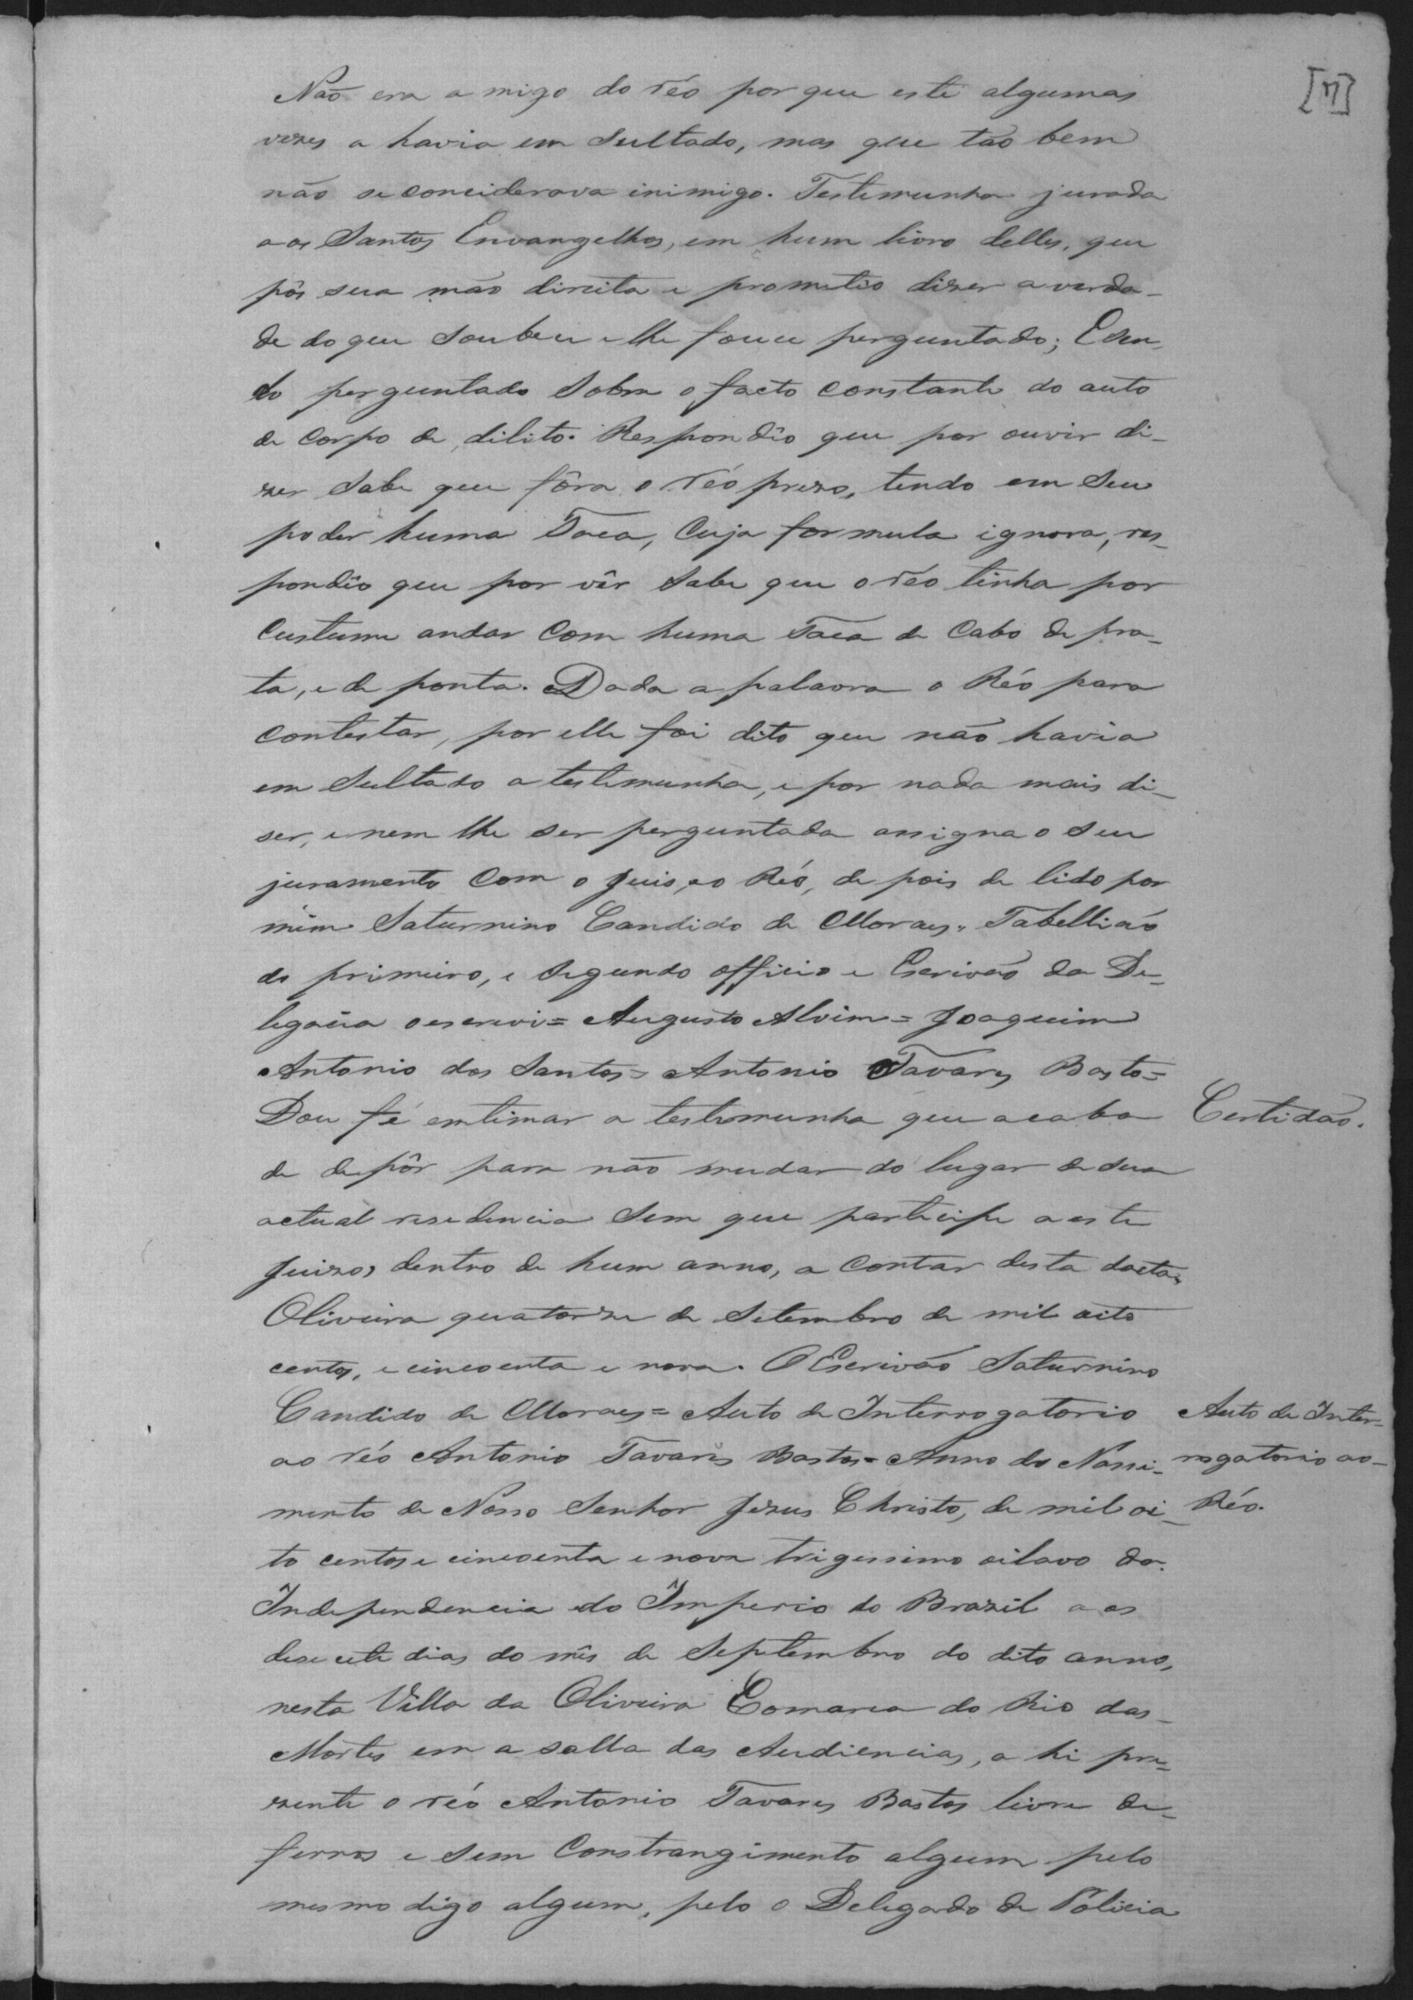 [7]
Não era a migo do réo por que este algumas
vezes a havia em sultado, mas que tão bem
não se conciderava inimigo. Testemunha jurada
a os Santos Envangelhos, em hum livro delles, que
pôs sua mão direita e prometio dizer a verda-
de do que soubeu e lhe fouce perguntado; E sen-
do perguntado sobre o facto constante do auto
de corpo de dilito. Respondêo que por ouvir di-
zer sabe que fôra o réo prezo, tendo em seu
poder huma Faca, cuja formula ignora, res-
pondêo que por vêr sabe que o réo tinha por
custume andar com huma Faca de cabo de pra-
ta, e de ponta. Dada a palavra o Réo para
contestar, por elle foi dito que não havia
em sultado a testemunha, e por nada mais di-
ser, e nem lhe ser perguntada assigna o seu
juramento com o Juis, e o Réo, de pois de lido por
mim Saturnino Candido de Moraes, Tabellião
do primeiro, e segundo officio e Escrivão da De-
legacia o escrevi = Augusto Alvim = Joaquim
Antonio dos Santos = Antonio Tavares Basto =
Dou fé entimar a testemunha que acaba
Certidão.
de depôr para não mudar do lugar de sua
actual residencia sem que participe a este
Juizo, dentro de hum anno, a contar desta dacta
Oliveira quatorze de Setembro de mil oito
centos, e cincoenta e nove. O Escrivão Saturnino
Candido de Moraes = Auto de Interrogatorio
Auto de Inter-
ao réo Antonio Tavares Bastos = Anno do Nassi-
rogatorio ao-
mento de Nosso Senhor Jezus Christo, de mil oi-
Réo.
to centos e cincoenta e nove trigessimo oitavo da
Independencia e do Imperio do Brazil a os
desecete dias do mês de Septembro do dito anno,
nesta Villa da Oliveira Comarca do Rio das
Mortes em a salla das Audiencias, a hi pre-
zente o réo Antonio Tavares Bastos livre de
ferros e sem constrangimento algum pelo
mesmo digo algum, pelo o Delegado de Policia